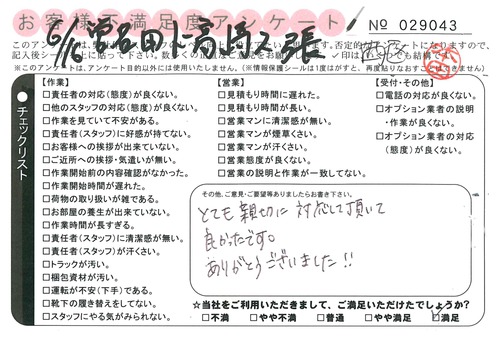 お客様不満足度アンケート
No 029043
【作業】
□責任者の対応(態度)が良くない。
□他のスタッフの対応(態度)が良くない。
□作業を見ていて不安がある。
□責任者(スタッフ)に好感が持てない。
□お客様への挨拶が出来ていない。
□ご近所への挨拶・気遣いが無い。
□作業開始前の内容確認がなかった。
□作業開始時間が遅れた。
□荷物の取り扱いが雑である。
□お部屋の養生が出来ていない。
□作業時間が長すぎる。
□責任者(スタッフ)に清潔感が無い。
□責任者(スタッフ)が汗くさい。
□トラックが汚い。
□梱包資材が汚い。
□運転が不安(下手)である。
□靴下の履き替えをしてない。
□スタッフにやる気がみられない。
【営業】
□見積もり時間に遅れた。
□見積もり時間が長い。
□営業マンに清潔感が無い。
□営業マンが煙草くさい。
□営業マンが汗くさい。
□営業態度が良くない。
□営業の説明と作業が一致してない。
【受付・その他】
□電話の対応が良くない。
□オプション業者の説明
・作業が良くない。
□オプション業者の対応
(態度)が良くない。
チェックリスト
その他、ご意見・ご要望等ありましたらお書き下さい。
とても親切に対応して頂いて
良かったです。
ありがとうございました!!
☆当社をご利用いただきまして、ご満足いただけたでしょうか?
□不満 □やや不満 □普通 □やや満足 □満足